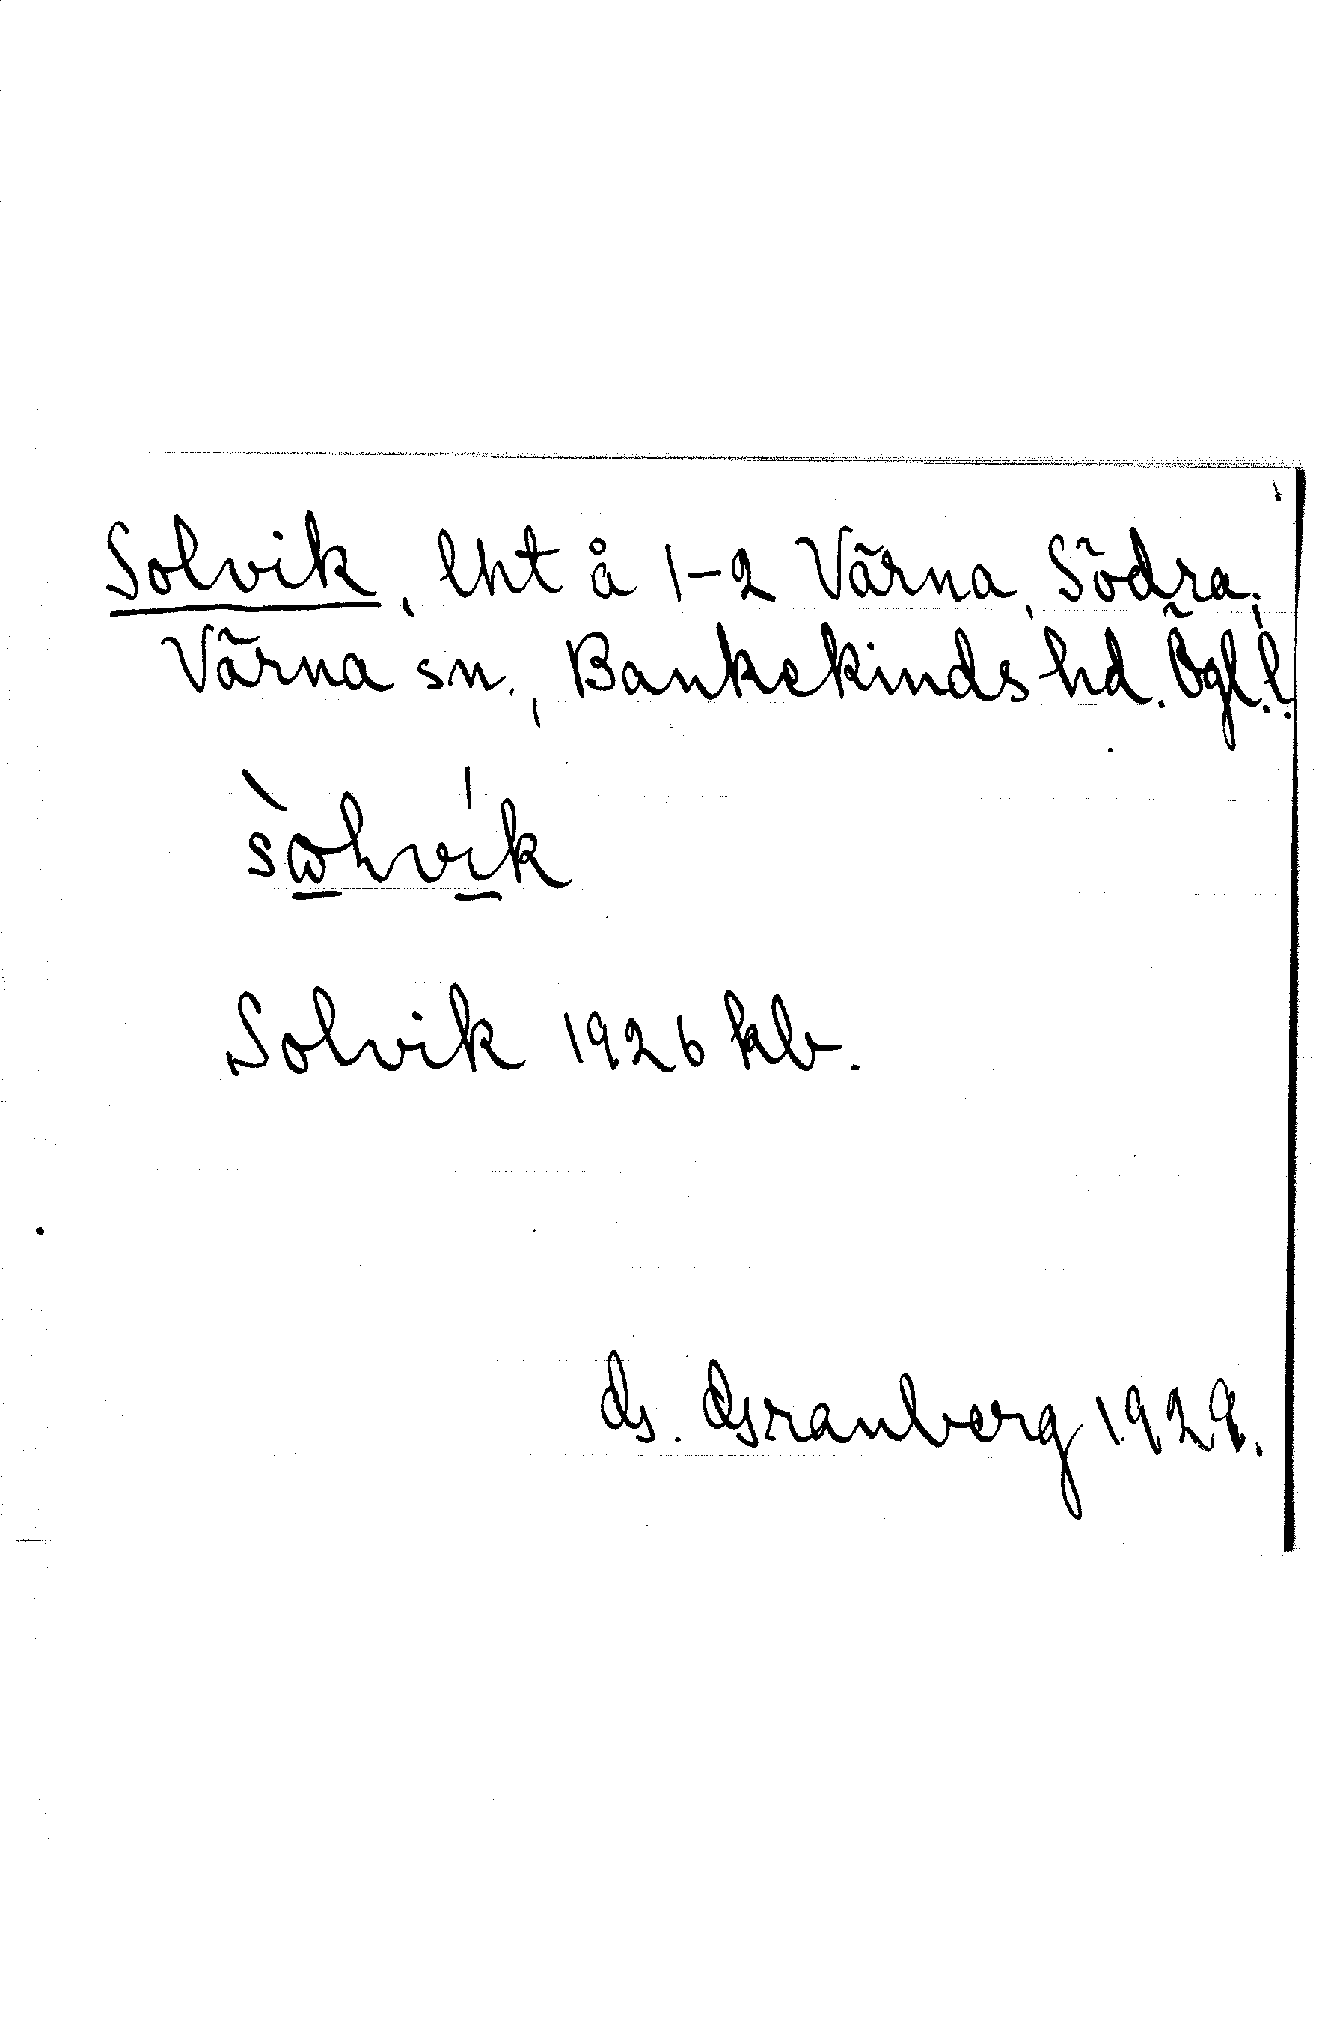 Solvik, lht å 1-2 Värna, Södra,
Värna sn., Bankekinds hd. Ögl.l.
Solvik 1926 kb.
G. Granberg 1929.